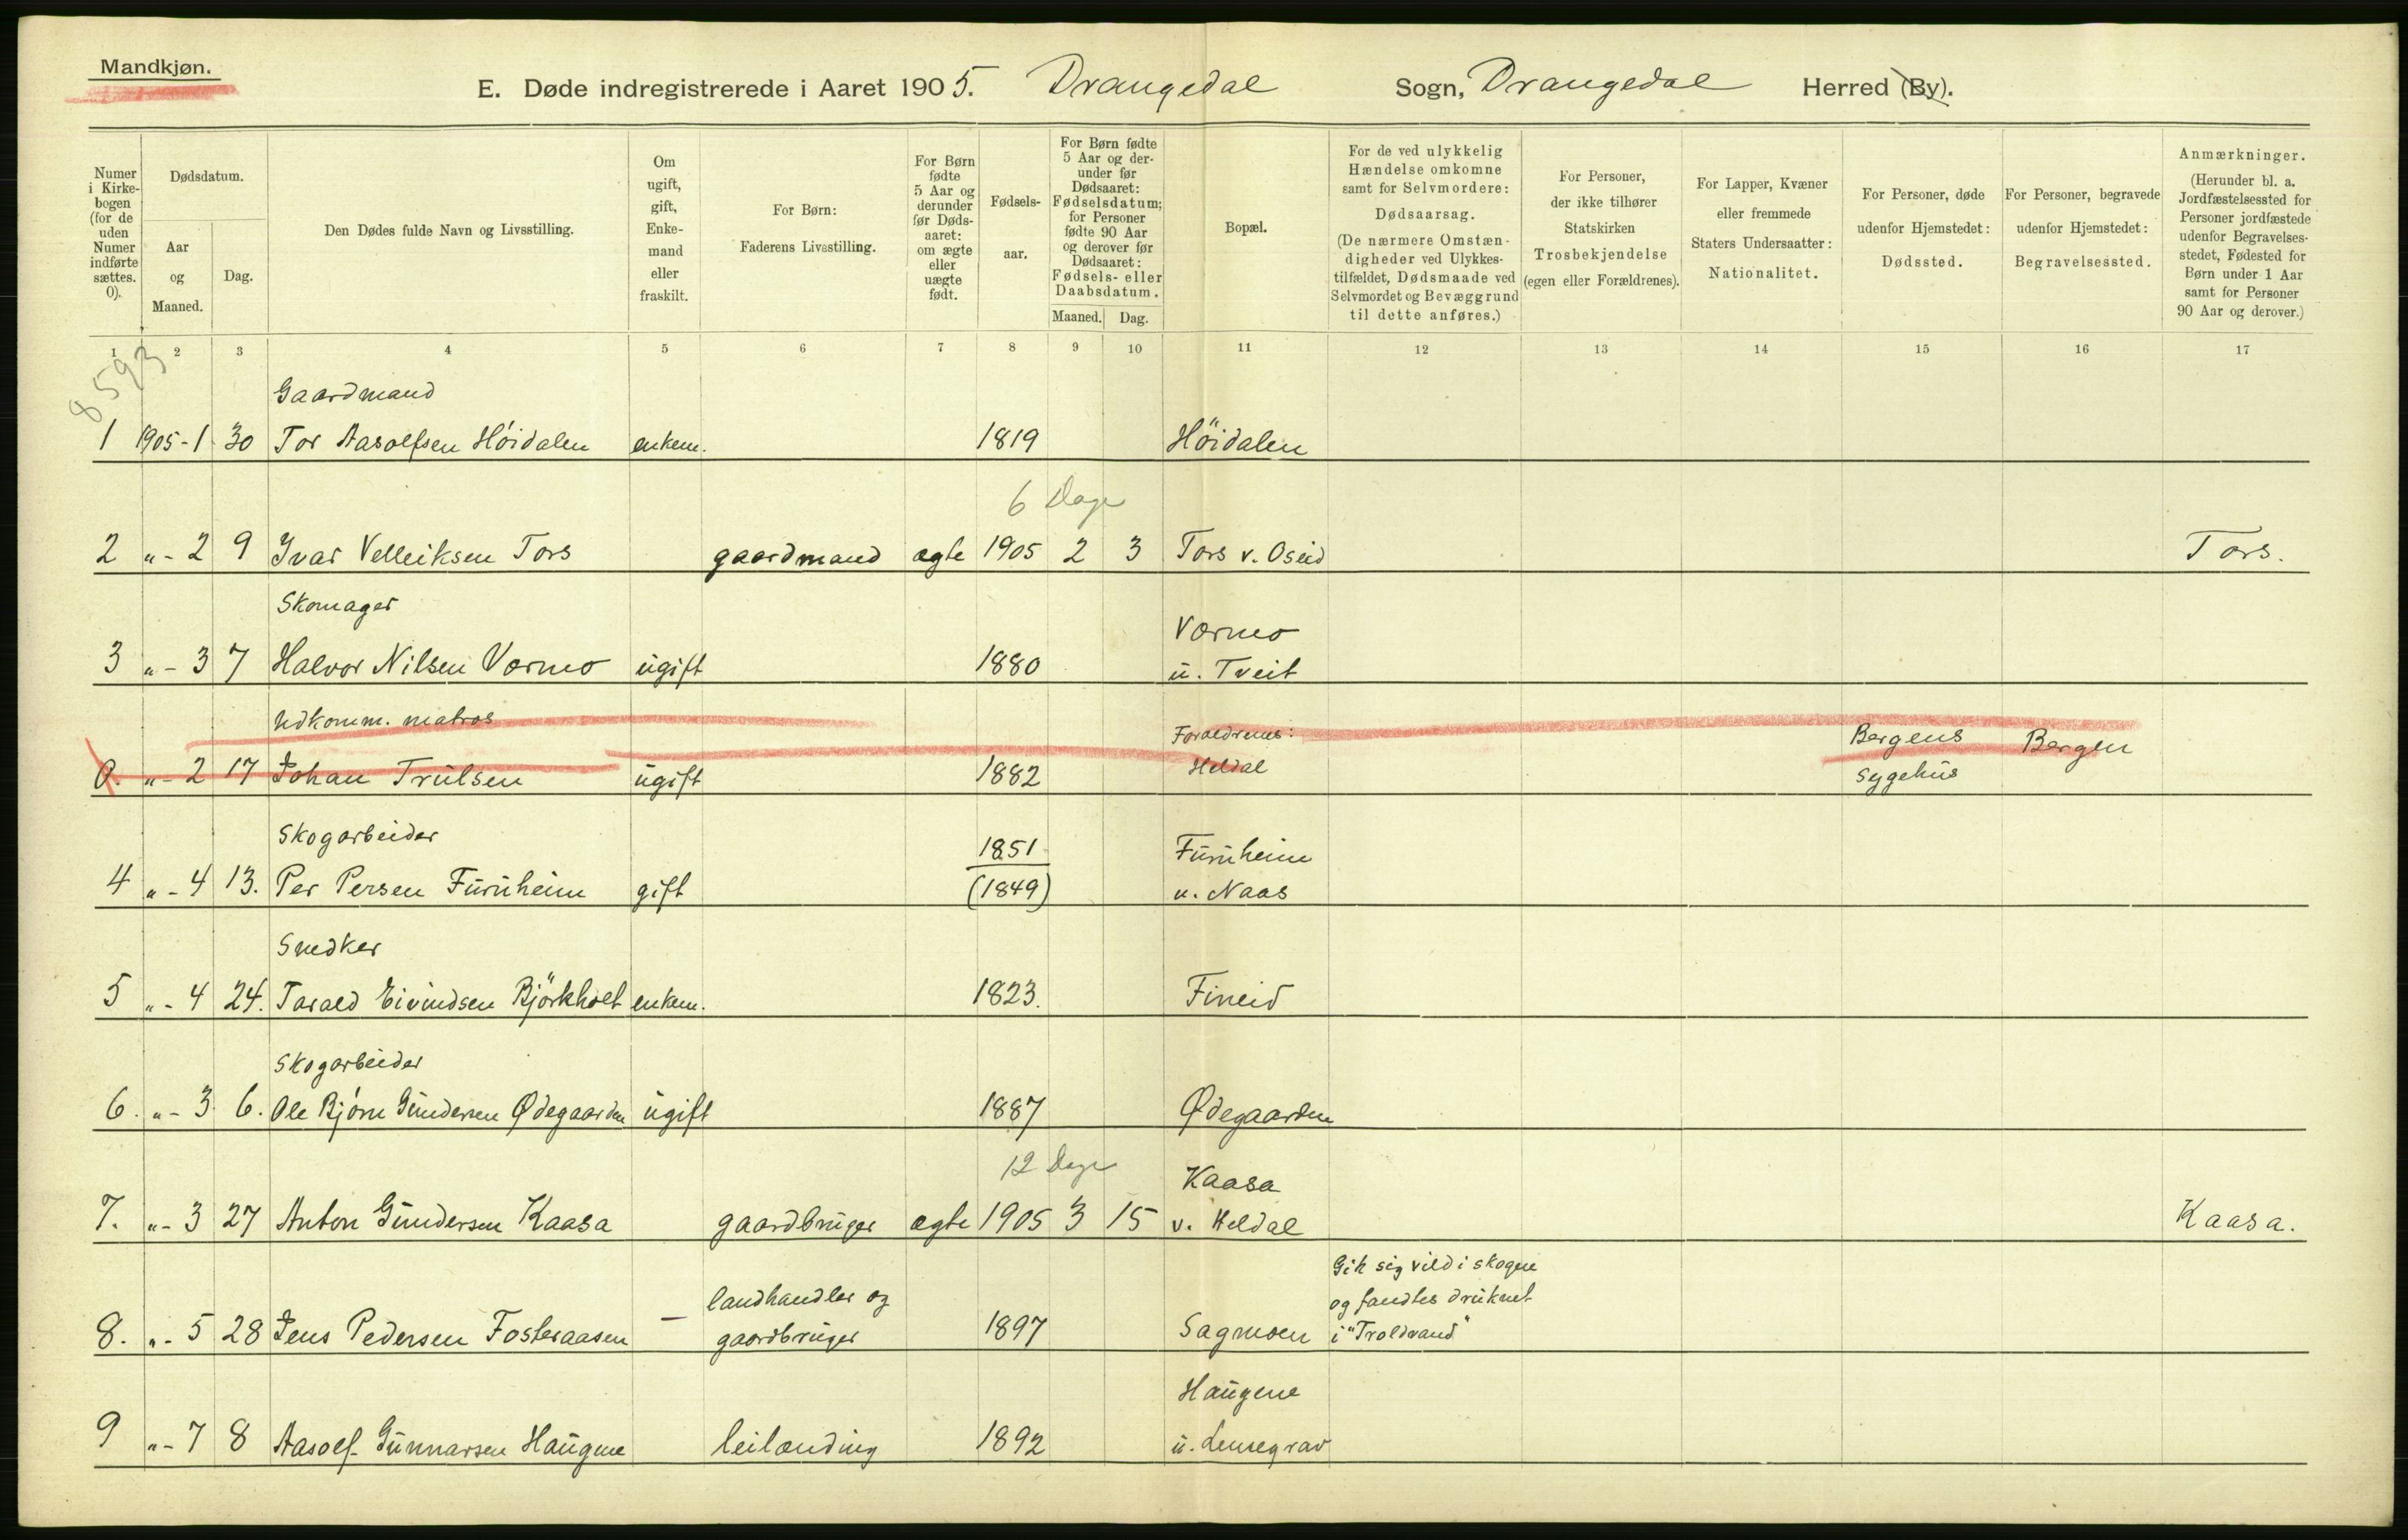 Mandkjøn.
E. Døde indregistrerede i Aaret 1905. Drangedal Sogn, Drangedal Herred (By).
Numer i Kirkebogen (for de uden Numer indførte sættes. 0).
Dødsdatum.
Aar og Maaned.
Dag.
Den Dødes fulde Navn og Livsstilling.
Om ugift, gift, Enkemand eller fraskilt.
For Børn: Faderens Livsstilling.
For Børn fødte 5 Aar og derunder før Dødsaaret: om ægte eller uægte født.
Fødselsaar.
For Børn fødte 5 Aar og derunder før Dødsaaret: Fødselsdatum; for Personer fødte 90 Aar og derover før Dødsaaret: Fødsels- eller Daabsdatum.
Maaned. Dag.
Bopæl.
For de ved ulykkelig Hændelse omkomne samt for Selvmordere: Dødsaarsag. (De nærmere Omstændigheder ved Ulykkestilfældet, Dødsmaade ved Selvmordet og Bevæggrund til dette anføres.)
For Personer, der ikke tilhører Statskirken Trosbekjendelse (egen eller Forældrenes).
For Lapper, Kvæner eller fremmede Staters Undersaatter: Nationalitet.
For Personer, døde udenfor Hjemstedet: Dødssted.
For Personer, begravede udenfor Hjemstedet: Begravelsessted.
Anmærkninger. (Herunder bl. a. Jordfæstelsessted for Personer jordfæstede udenfor Begravelsesstedet, Fødested for Børn under 1 Aar samt for Personer 90 Aar og derover.)
1 2 3 4 5 6 7 8 9 10 11 12 13 14 15 16 17
8593
Gaardmand
1 1905-1 30 Tor Aasolfsen Höidalen enkem. 1819 Höidalen
6 Dage
2 "- 2 9 Ivar Velleiksen Tors gaardmand ægte 1905 2 3 Tors v. Oseid Tors.
Skomager Værmo
3 "- 3 7 Halvor NilsenVærmo ugift 1880 u. Tveit
Udkomm. matros Forældrenes: Bergens Bergen
0. "- 2 17 Johan Trulsen ugift 1882 Heldal Sygehus
Skogarbeider 1851 Furuheim
4 "- 4 13. Per Persen Furuheim gift (1849) u. Naas
Snedker
5 "- 4 24. Tarald Eivindsen Björkholt enkem. 1823. Fineid
Skogarbeider
6. "- 3 6. Ole Björn Gundersen Ødegaarden ugift 1887 Ødegaarden
12 Dage Kaasa
7. "- 3 27 Anton Gundersen Kaasa gaardbruger ægte 1905 3 15 v. Heldal Kaasa.
landhandler og Gik sig vild i skogene
og fandtes druknet
8. "- 5 28 Jens Pedersen Fosteraasen — gaardbruger 1897 Sagmoen i "Troldvand"
Haugene
9 "- 7 8 Aasolf Gunnarsen Haugene leilænding 1892 u. Lensegrav